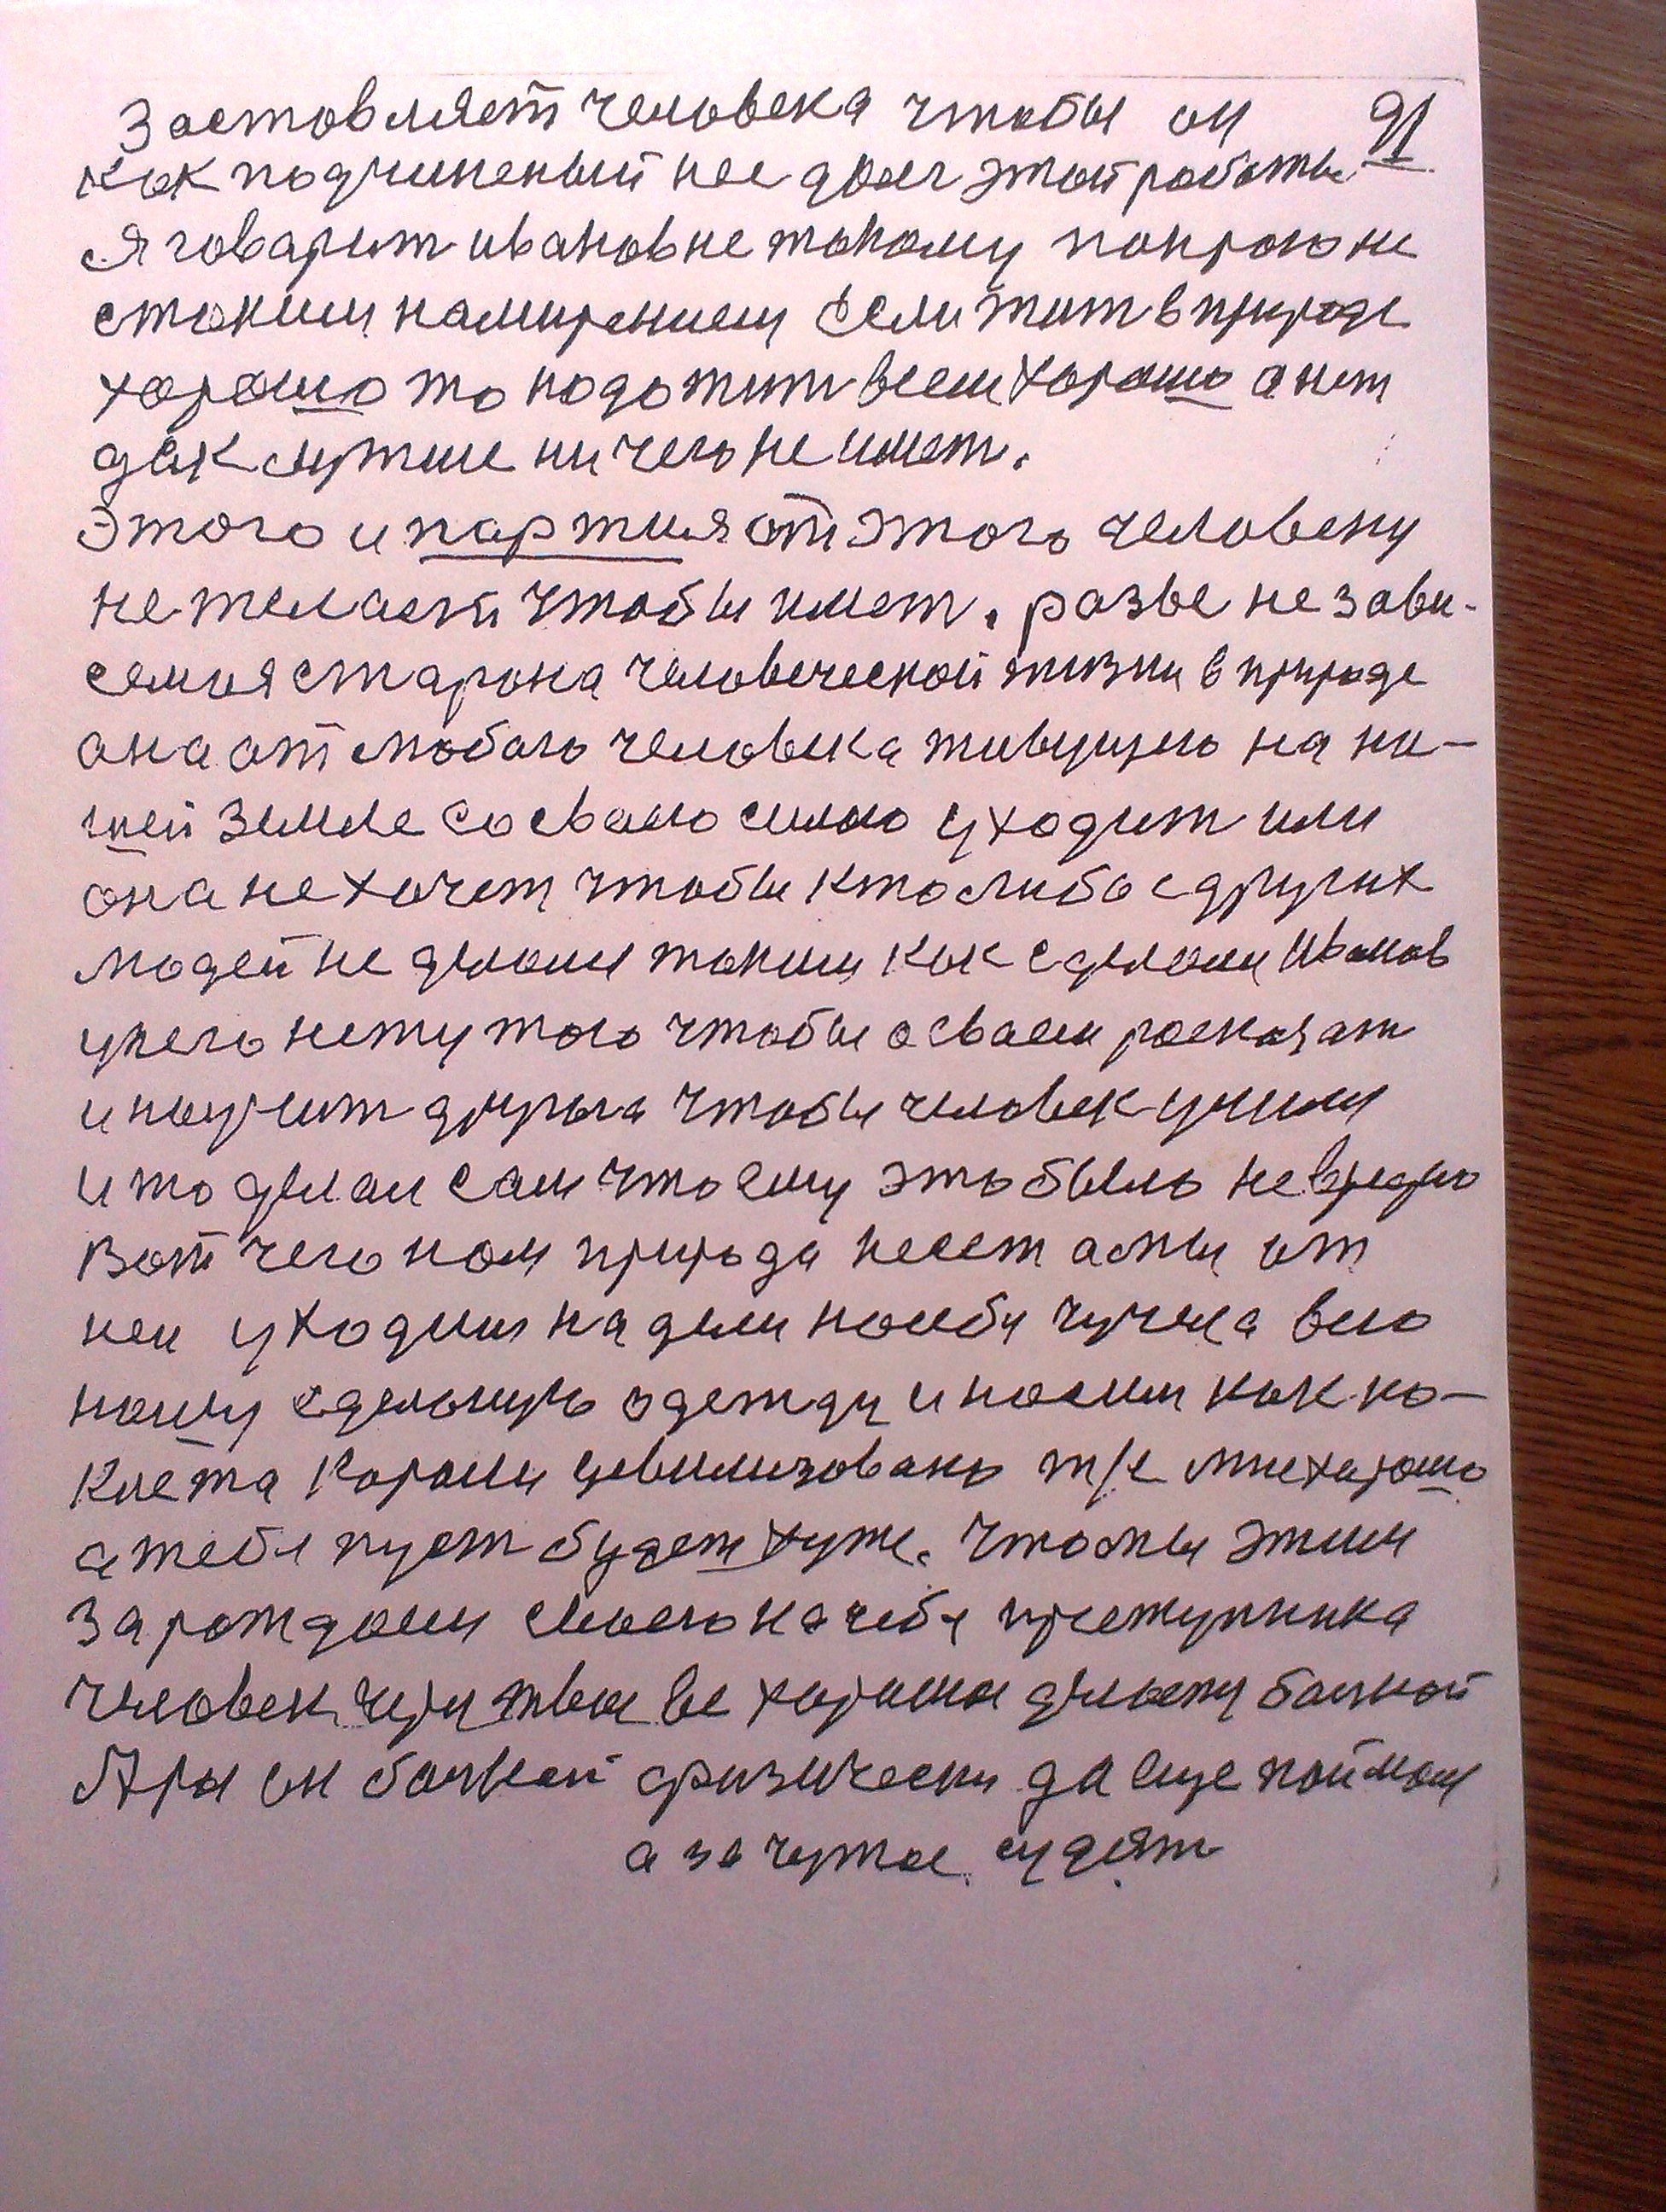 Заставляет человека чтобы он 91
как подчиненый не дался этой работы
Я говарит иванов не такому покрою не
стаким намирением Если жит в природе
харашо то нада жит всем харашо а нет
дак лутше ни чего не имет.
Этого и партия от этого человеку
не желает чтобы имет. разве не зави-
семая старона человеческой жизни в природе
она от любого человека живущего на на-
шей Земле со сваею силаю уходит или
она не хочет чтобы кто либо с других
людей не делали таким как сделали Иванов
у него нету того чтобы о сваем росказат
и научит другога чтобы человек училы
и то делал сам что ему это было не вредно
Вот чего нам природа несет а мы от
неи уходим надели на себя чучела всю
нашу сделаную одежду и насим как ко-
кието Корали цивилизовано т/е мне харашо
а тебе пуст будет хуже. Что мы этим
зараждаем самого на себя преступника
человек через твое все харашое делаетца балной
Ады он балной физически да еще пойман
а за чужое судят